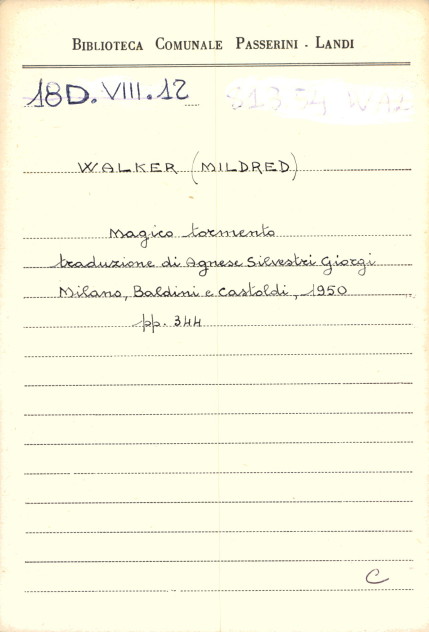 BIBLIOTECA COMUNALE PASSERINI - LANDI
18D. VIII. 12 813 54 WAL
WALKER (MILDRED)
Magico tormento
traduzione di Agnese Silvestri Giorgi
Milano, Baldini e Castoldi, 1950
pp. 344
C